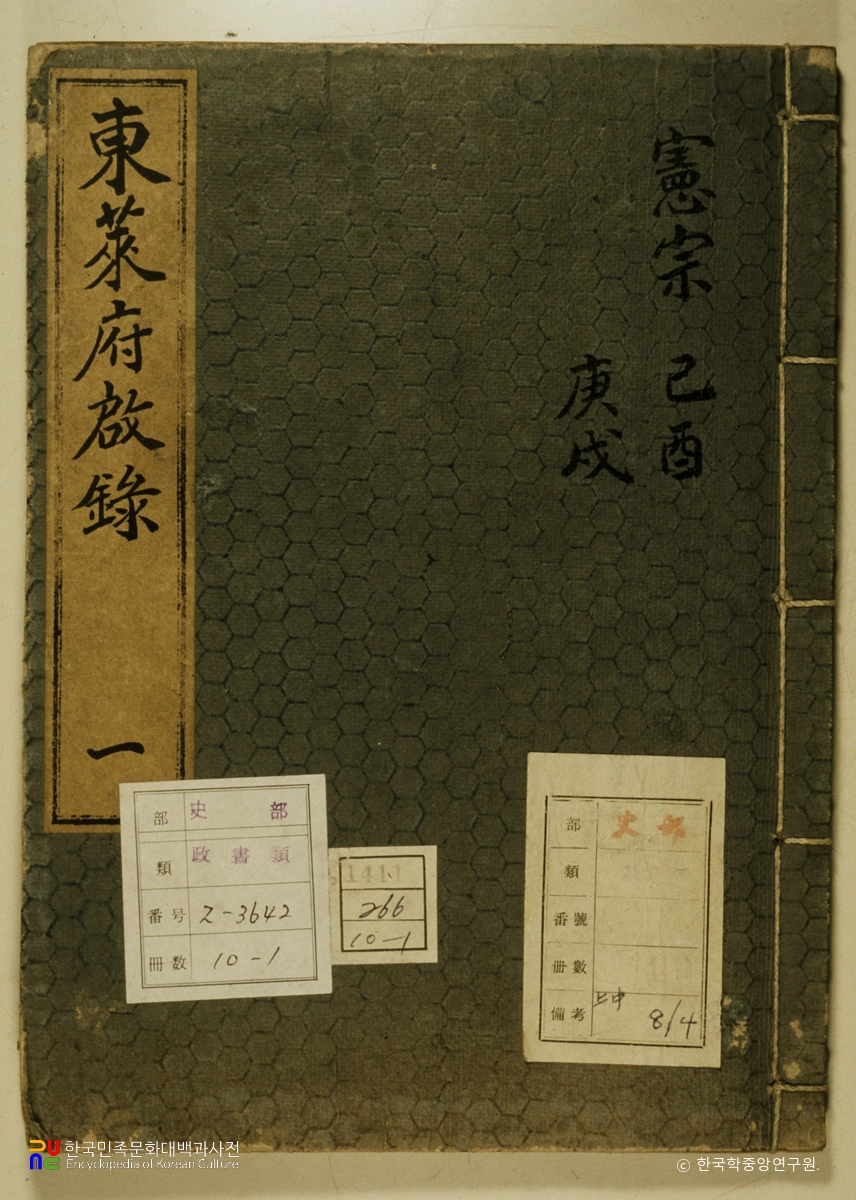 憲宗 己酉
庚戌
東萊府啟錄 一
部 史部
類 政書類
番号 Z-3642
冊数 10-1
266
10-1
部 史部
類
番號
冊數
備考 8/4
한국민족문화대백과사전
Encyclopedia of Korean Culture
© 한국학중앙연구원.